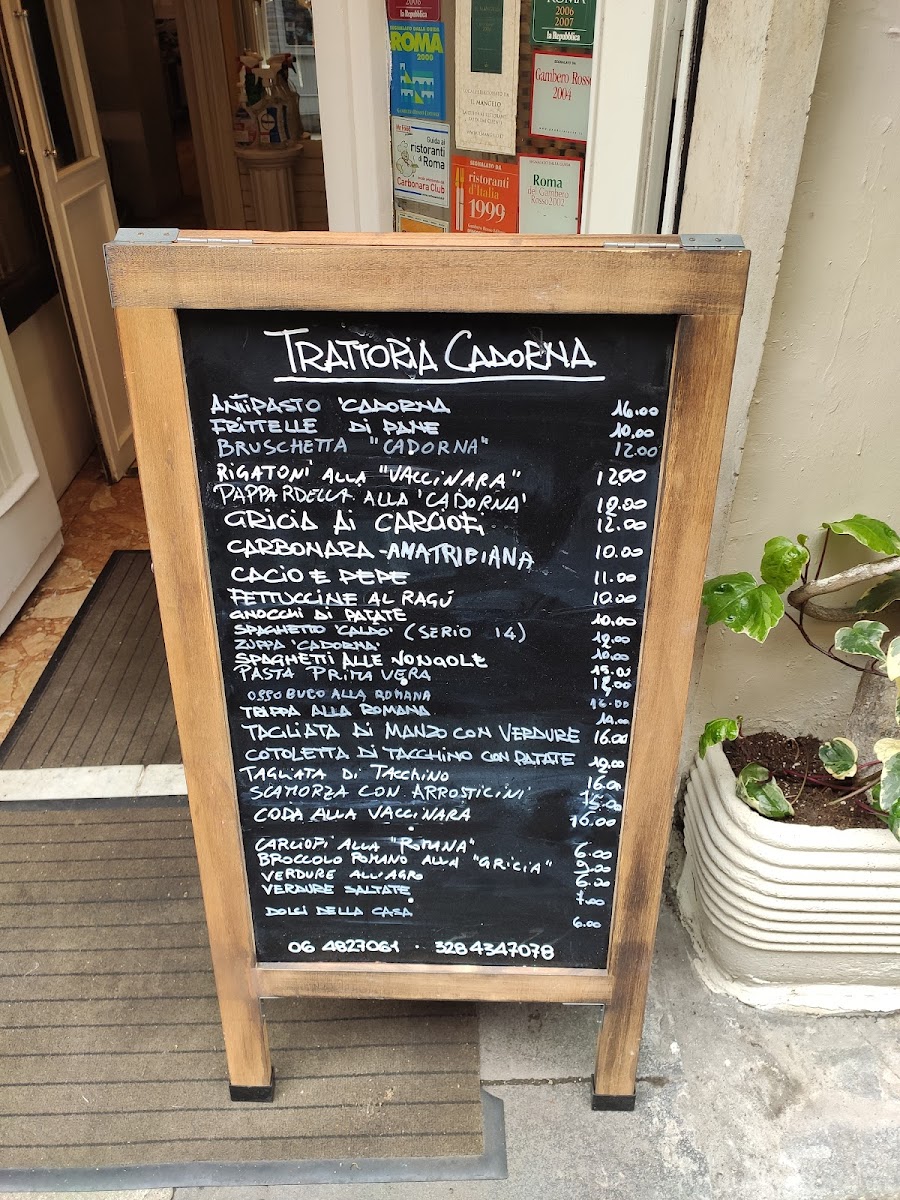 la Repubblica
ROMA
2000
2006
2007
la Repubblica
Gambero Rosso
2004
IL MANGELO
Guida ai
ristoranti
di Roma
Carbonara Club
SEGNALATO DA
ristoranti
d'Italia
1999
Roma
del Gambero
Rosso 2002
TRATTORIA CADORNA
ANTIPASTO "CADORNA 16.00
FRITTELLE DI PANE 10.00
BRUSCHETTA "CADORNA" 12.00
RIGATONI ALLA "VACCINARA" 12.00
PAPPARDELLA ALLA "CADORNA" 12.00
GRICIA AI CARCIOFI 12.00
CARBONARA - AMATRICIANA 10.00
CACIO E PEPE 11.00
FETTUCCINE AL RAGÚ 10.00
GNOCCHI DI PATATE 10.00
SPAGHETTO "CALDO" (SERIO 14) 12.00
ZUPPA "CADORNA" 10.00
SPAGHETTI ALLE VONGOLE 15.00
PASTA PRIMAVERA 12.00
OSSOBUCO ALLA ROMANA 16.00
TRIPPA ALLA ROMANA 14.00
TAGLIATA DI MANZO CON VERDURE 16.00
COTOLETTA DI TACCHINO CON PATATE
TAGLIATA DI TACCHINO 16.00
SCAMORZA CON ARROSTICINI 15.00
CODA ALLA VACCINARA 16.00
CARCIOFI ALLA "ROMANA" 6.00
BROCCOLO ROMANO ALLA "GRICIA" 9.00
VERDURE ALL'AGRO 6.00
VERDURE SALTATE 7.00
DOLCI DELLA CASA 6.00
06 4827061 · 328 4347078